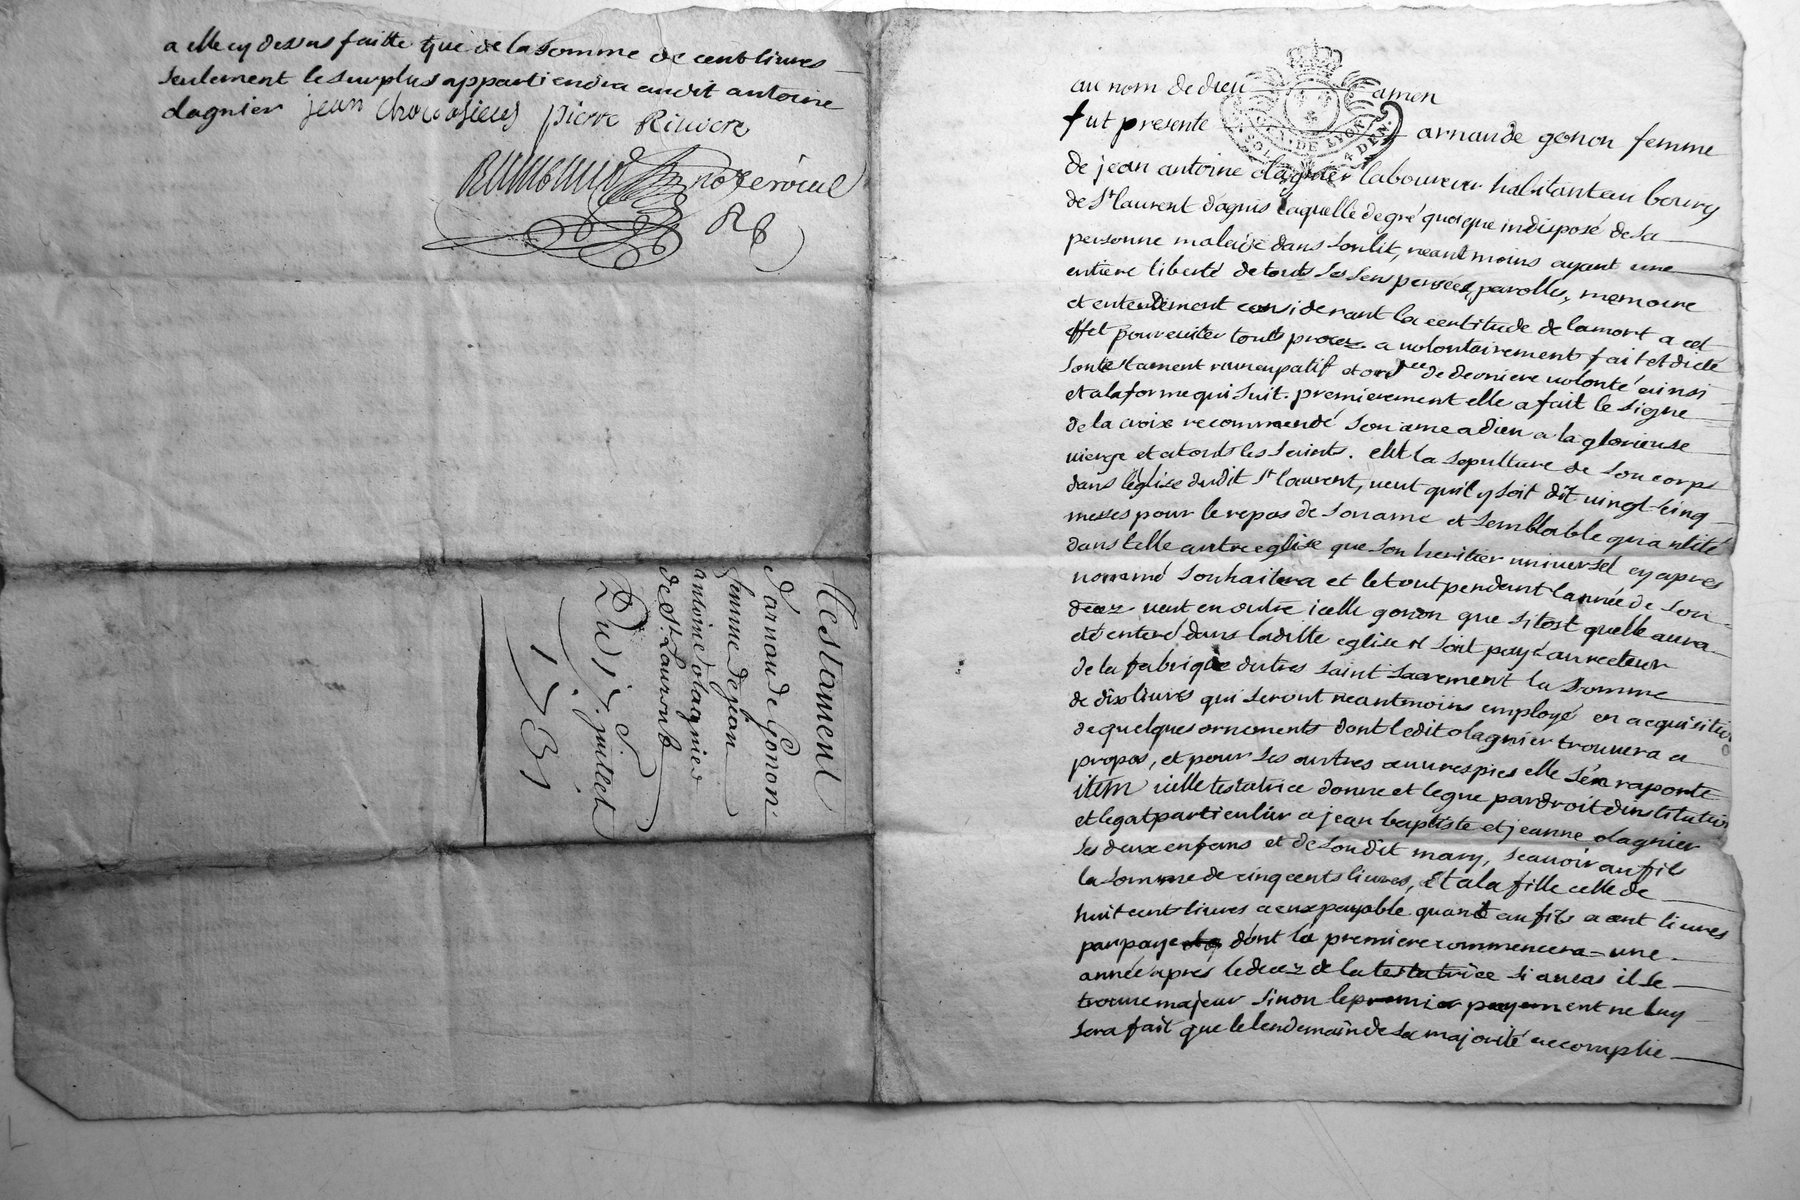 a elle cy dessus faitte que de la somme de cent livres
seulement le surplus appartiendra audit antoine
olagnier jean pierre Riviere
no.re roial
Testament
d'arnaude Gonon
femme de jean
antoine olagnier
de St. Laurent
Du 17. juillet
1731
au nom de dieu amen
fut presente arnaude gonon femme
GEN. DE LYON
4 DEN.
de jean antoine olagnier laboureur habitante au bourg
de St laurent d'agnis laquelle de gré quoique indisposé de sa
personne malade dans son lit, neantmoins ayant une
entiere liberté de touts ses sens pensées, parolles, memoire
et entendement considerant la certitude de la mort a cet
effet pour eviter touts procez a volontairement fait et dicté
son testament nuncupatif et ord.ce de derniere volonté ainsi
et a la forme qui suit. premierement elle a fait le signe
de la croix recommendé son ame a dieu a la glorieuse
vierge et a touts les saints. elit la sepulture de son corps
dans l'eglise dudit St laurent, veut qu'il y soit dit vingt cinq
messes pour le repos de son ame et semblable quantité
dans telle autre eglise que son heritier universel cy apres
nommé souhaitera et le tout pendant l'année de son
decez. veut en outre icelle gonon que sitost quelle aura
eté enteré dans laditte eglise il soit payé au recteur
de la fabrique du tres saint sacrement la somme
de dix livres qui seront neantmoins employé en acquisition
de quelques ornements dont ledit olagnier trouvera a
propos, et pour ses autres œuvres pies elle s'en raporte
item icelle testatrice donne et legue par droit d'institution
et legat particulier a jean baptiste et jeanne olagnier
ses deux enfans et de son dit mary, scauoir au fils
la somme de cinq cents livres, et a la fille celle de
huit cent livres a eux payable quant au fils a cent livres
par paye dont la premiere commencera une
année apres le decez de la testatrice si au cas il se
trouve majeur sinon le premier payement ne luy
sera fait que le lendemain de sa majorité accomplie